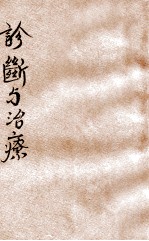 診斷与治療